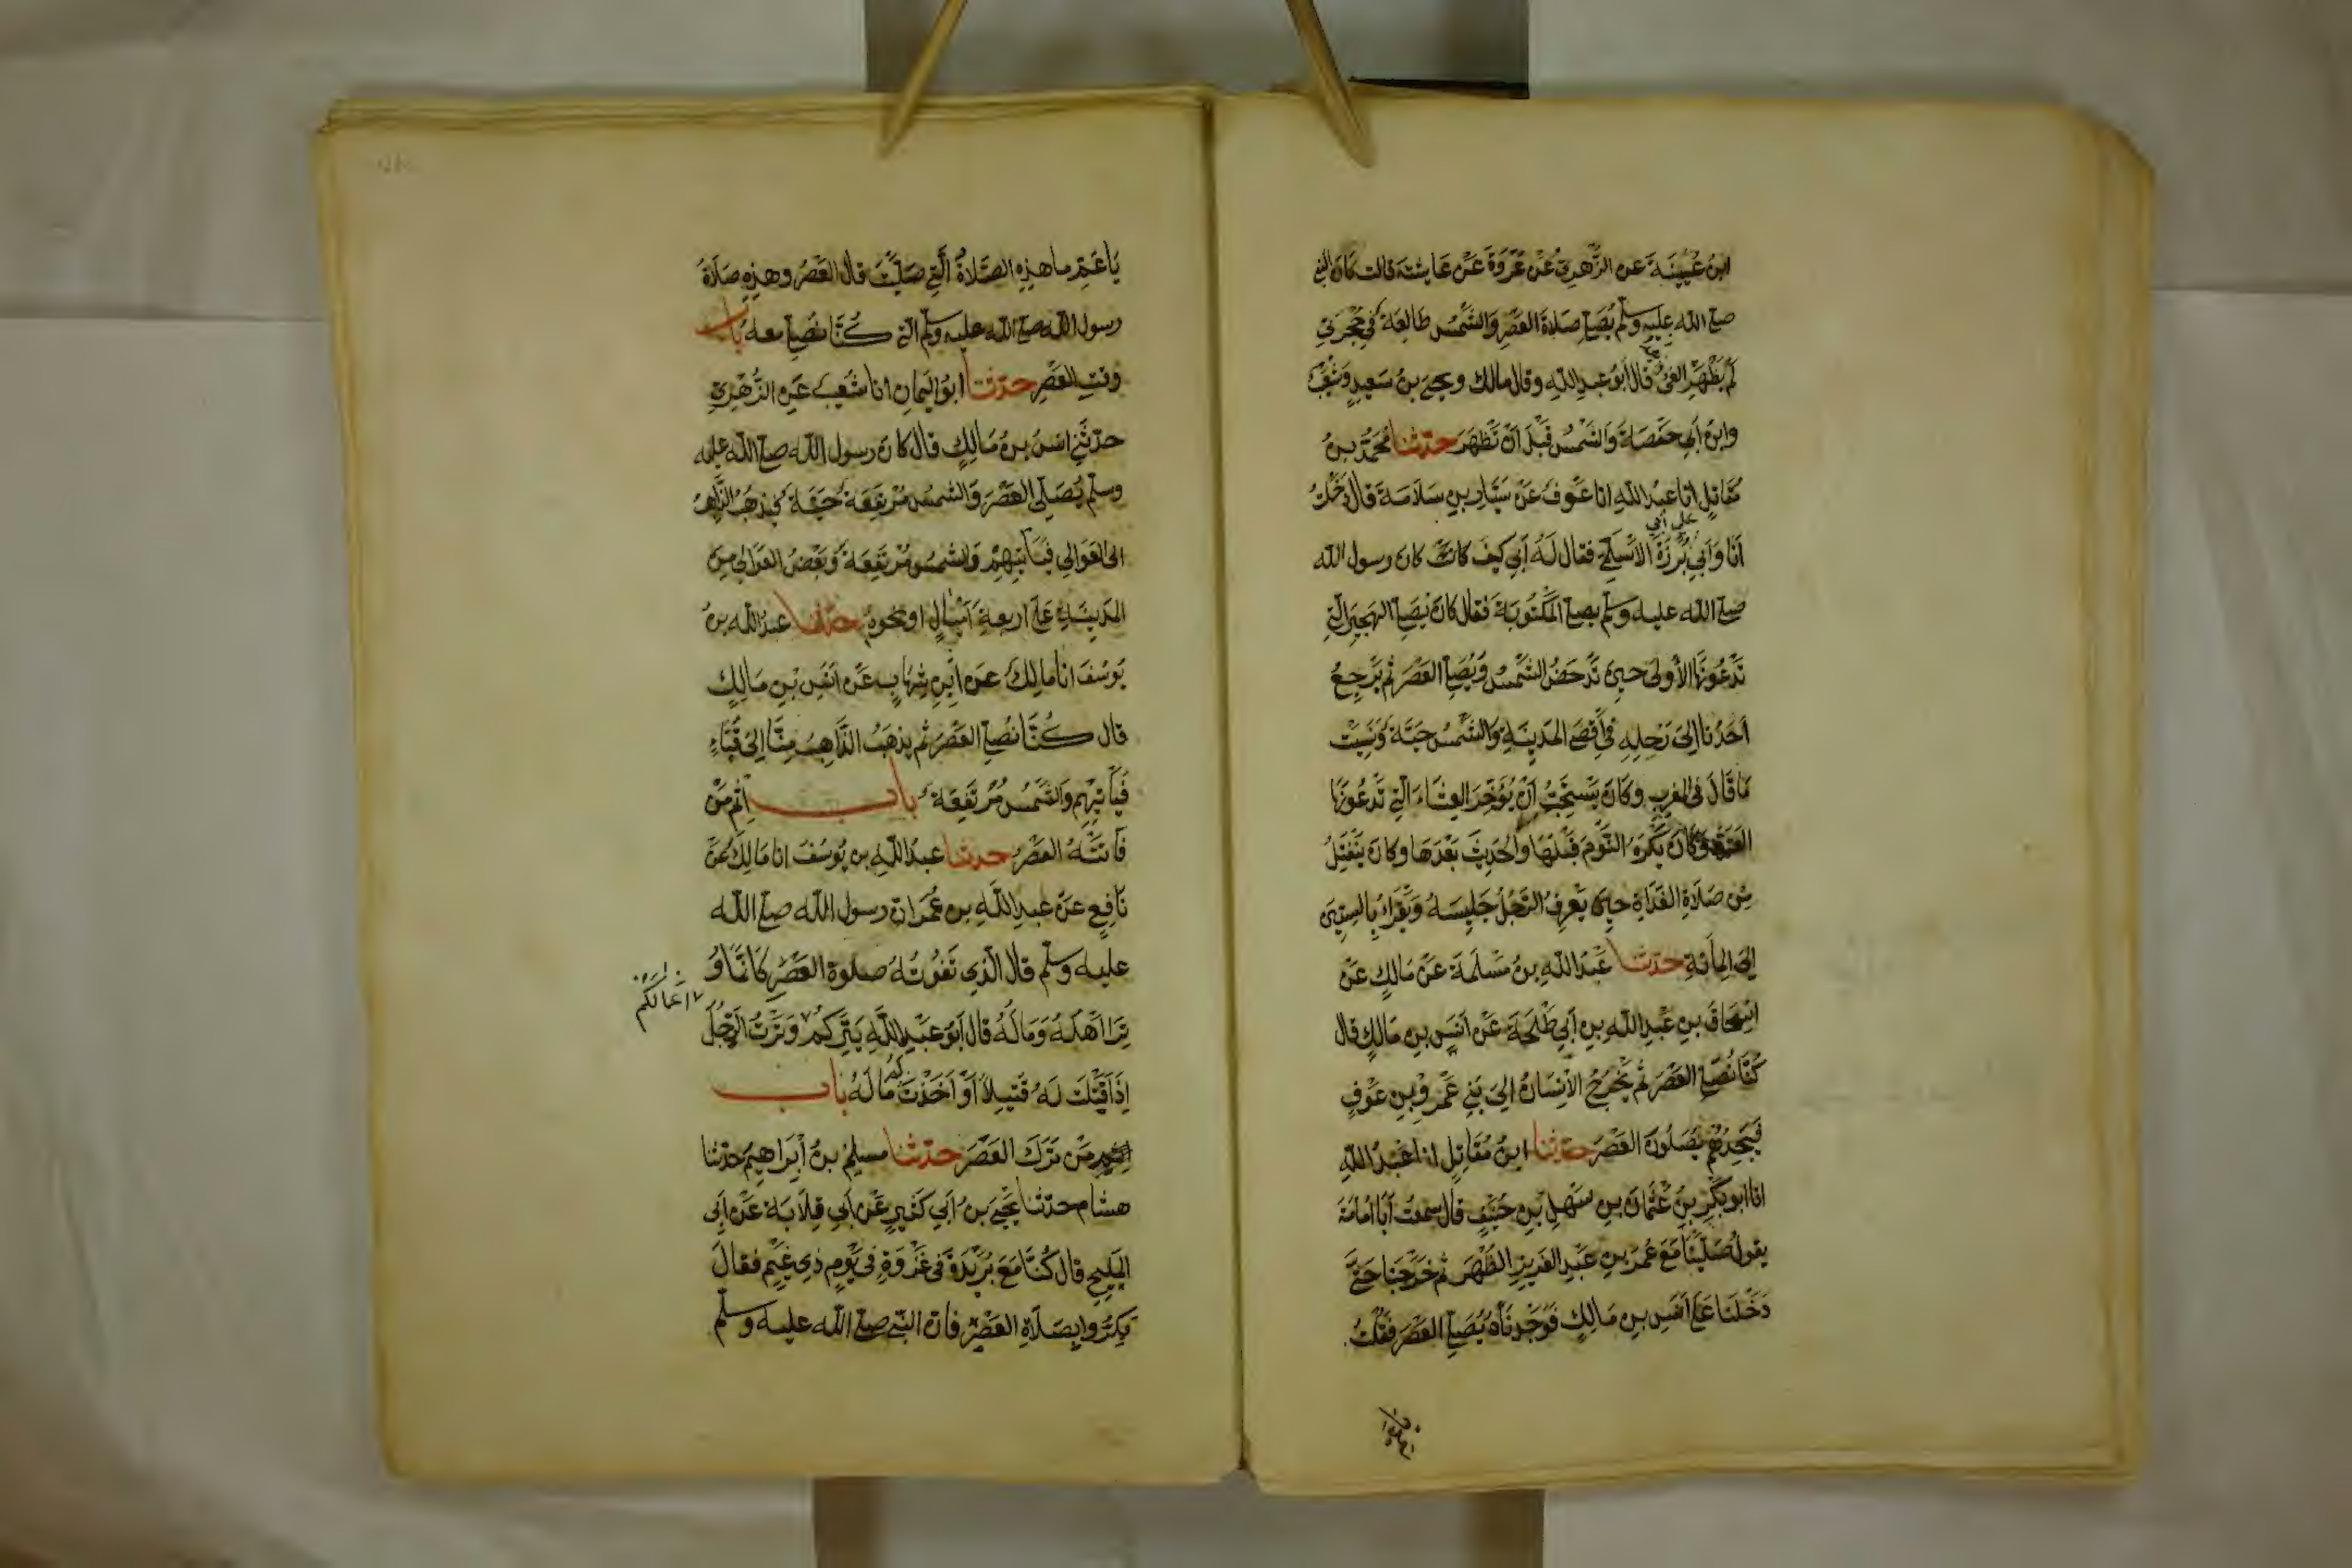 ابن عُيَيْنَةَ عن الزُّهْرِيِّ عَنْ عُرْوَةَ عَنْ عَايشة قالت كان النبي
صلى الله عليه وسلم يُصَلِّي صَلَاةَ العَصْرِ وَالشَّمْسُ طَالِعَةٌ فِي حُجْرَتِي
لَمْ يَظْهَرِ الفَيْءُ قال أبو عبد الله وقال مالك ويحيى بنُ سَعِيدٍ وَشُعَيْبٌ
وابنُ أَبِي حَفْصَةَ وَالشَّمْسُ قَبْلَ أَنْ تَظْهَرَ حدّثنا مُحَمَّدُ بنُ
مُقَاتِلٍ انا عبدُ اللهِ انا عَوْفٌ عَنْ سَيَّارِ بنِ سَلَامَةَ قال دَخَلْتُ
على أبي
أنا وَأَبِي بَرْزَةَ الأَسْلَمِيِّ فقال لَهُ أَبِي كيفَ كان كان رسول الله
صلى الله عليه وسلم يصلي المَكْتُوبَةَ فقال كان يُصَلِّي الهَجِيرَ الَّتِي
تَدْعُونَهَا الأُولَى حينَ تَدْحَضُ الشَّمْسُ وَيُصَلِّي العَصْرَ ثُمَّ يَرْجِعُ
أَحَدُنَا إِلَى رَحْلِهِ فِي أَقْصَى المَدِينَةِ وَالشَّمْسُ حَيَّةٌ وَنَسِيتُ
مَا قَالَ فِي المغرب وكَانَ يَسْتَحِبُّ أَنْ يُؤَخِّرَ العِشَاءَ الَّتِي تَدْعُونَهَا
العَتَمَةَ وَكَانَ يَكْرَهُ النَّوْمَ قَبْلَهَا والحَدِيثَ بَعْدَهَا وكان يَنْفَتِلُ
مِنْ صَلَاةِ الغَدَاةِ حينَ يَعْرِفُ الرَّجُلُ جَلِيسَهُ وَيَقْرَأُ بِالسِّتِّينَ
إِلَى المِائَةِ حدّثنا عَبْدُ اللهِ بنُ مَسْلَمَةَ عَنْ مَالِكٍ عَنْ
إِسْحَاقَ بنِ عَبْدِ اللهِ بنِ أَبِي طَلْحَةَ عَنْ أَنَسِ بنِ مَالِكٍ قال
كُنَّا نُصَلِّي العَصْرَ ثُمَّ يَخْرُجُ الإِنْسَانُ إِلَى بَنِي عَمْرِو بنِ عَوْفٍ
فَيَجِدُهُمْ يُصَلُّونَ العَصْرَ حدّثنا ابنُ مُقَاتِلٍ انا عَبْدُ اللهِ
انا ابو بَكْرِ بنُ عُثْمَانَ بنِ سَهْلِ بنِ حُنَيْفٍ قال سمعت أَبَا أُمَامَةَ
يقولُ صَلَّيْنَا مَعَ عُمَرَ بنِ عَبْدِ العَزِيزِ الظُّهْرَ ثُمَّ خَرَجْنَا حَتَّى
دَخَلْنَا عَلَى أَنَسِ بنِ مَالِكٍ فَوَجَدْنَاهُ يُصَلِّي العَصْرَ فَقُلْتُ
يَا عَمِّ ما هذِهِ الصَّلَاةُ الَّتِي صَلَّيْتَ قال العَصْرُ وهذِهِ صَلَاةُ
رسول الله صلى الله عليه وسلم التي كُنَّا نُصَلِّي معه بَاب
وقتِ العَصْرِ حدّثنا ابو اليَمَانِ انا شُعَيْبٌ عَنِ الزُّهْرِيِّ
حدّثني انسُ بنُ مَالِكٍ قال كان رسول الله صلى الله عليه
وسلم يُصَلِّي العَصْرَ وَالشَّمسُ مُرْتَفِعَةٌ حَيَّةٌ فيَذْهَبُ الذَّاهِبُ
الى العَوَالِي فَيَأْتِيهِمْ وَالشمسُ مُرْتَفِعَةٌ وَبَعْضُ العَوَالِي مِنَ
المَدِينَةِ عَلَى اربعةِ أَمْيَالٍ او نحوه حدّثنا عبدُ الله بن
يُوسُفَ انا مالِكٌ عَنِ ابْنِ شِهَابٍ عَنْ أَنَسِ بْنِ مَالِكٍ
قال كُنَّا نُصَلِّي العَصْرَ ثم يذهَبُ الذَّاهِبُ مِنَّا إِلَى قُبَاءٍ
فَيَأْتِيهِمْ وَالشَّمْسُ مُرْتَفِعَةٌ باب إِثْم مَنْ
فَاتَتْهُ العَصْرُ حدّثنا عبدُ اللهِ بن يُوسُفَ انا مَالِكٌ عَنْ
نَافِعٍ عَنْ عَبْدِ اللهِ بن عُمَرَ ان رسول الله صلى الله
عليه وسلم قال الَّذِي تَفُوتُهُ صلوة العَصْرِ كَأَنَّمَا وُ
أعمالكم
تِرَ أَهْلَهُ وَمَالَهُ قال أَبُو عَبْدِ اللهِ يَتِرَكُمْ وَتَرْتُ الرَّجُلَ
إِذَا قَتَلْتَ لَهُ قَتِيلًا أَوْ أَخَذْتَ مَالَهُ باب
مَنْ تَرَكَ العَصْرَ حدّثنا مسلِمُ بنُ إِبْرَاهِيمَ حدّثنا
هشام حدّثنا يَحْيَى بنُ أَبِي كَثِيرٍ عَنْ أَبِي قِلَابَةَ عَنْ أَبِي
المَلِيحِ قال كُنَّا مَعَ بُرَيْدَةَ فِي غَزْوَةٍ فِي يَوْمٍ ذِي غَيْمٍ فقالَ
بَكِّرُوا بِصَلَاةِ العَصْرِ فان النبي صلى الله عليه وسلم